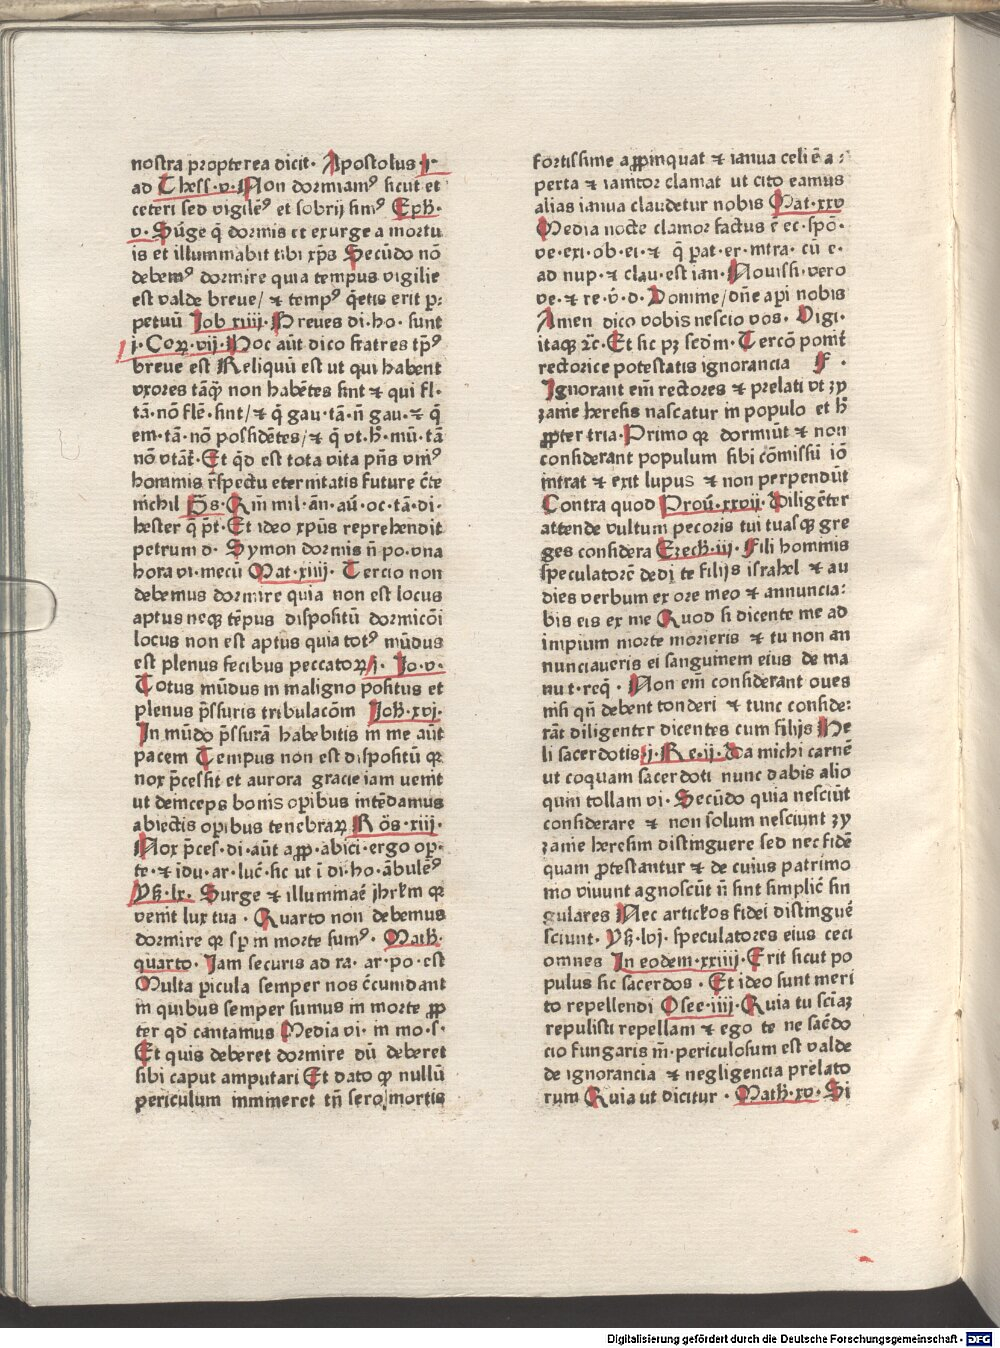 nostra propterea dicit· Apostolus ·j·
ad Thess·v·Non dormiamꝰ sicut et
ceteri sed vigilēꝰ et sobrij simꝰ Eph·
v· Surge q̄ dormis et exurge a mortu
is et illuminabit tibi xp̄s Secūdo nō
debemꝰ dormire quia tempus vigilie
est valde breue/ ⁊ tempꝰ q̄etis erit p̲:
petuū Iob xiiij·Breues di·ho· sunt
j·Coꝝ·vij·Hoc aūt dico fratres tp̄ꝰ
breue est Reliquū est ut qui habent
vxores tāq̄ꝫ non habētes sint ⁊ qui fl·
tā·nō flē·sint/⁊ q̄ gau·tā·n̄ gau·⁊ q̄
em·tā·nō possidētes/⁊ q̄ vt·h̄·mū·tā
nō vtāt̄·Et q̄d est tota vita pn̄s vniꝰ
hominis r̄spectu eternitatis future c̄te
nichil Ps·Qm̄ mil·an̄·au̅·oc·tā·di·
hester q̄ p̄t·Et ideo xpūs reprehendit
petrum d· Symon dormis n̄ po·vna
hora vi·mecū Mat·xiiij· Tercio non
debemus dormire quia non est locus
aptus neqꝫ tēpus dispositū dormicōi
locus non est aptus quia totꝰ mūdus
est plenus fecibus peccatoꝝ j· Io·v·
Totus mūdus in maligno positus et
plenus p̄ssuris tribulacōm Ioh·xvj·
In mūdo p̄ssurā habebitis in me aūt
pacem Tempus non est dispositū qꝛ
nox p̄cessit et aurora gracie iam uenit
ut deinceps bonis oꝑibus intēdamus
abiectis oꝑibus tenebraꝝ Rōs·xiij·
Nox p̄ces·di·aūt aꝓp·abici·ergo oꝑ·
te·⁊ īdu·ar·luc̄·sic ut ī di·ho·ābulēꝰ
Ys·lx· Surge ⁊ illuminaē ihrlm̄ qꝛ
venit lux tua · Quarto non debemus
dormire qꝛ sp̲ in morte sumꝰ· Math·
quarto· Iam securis ad ra· ar·po·est
Multa ꝑicula semper nos c̄cumdant
in quibus semper sumus in morte ꝓp
ter qd̄ cantamus Media vi· in mo·s·
Et quis deberet dormire dū deberet
sibi caput amputari Et dato ꝙ nullū
periculum immineret tn̄ sero mortis
fortissime aꝓpinquat ⁊ ianua celi ē a:
perta ⁊ ianitor clamat ut cito eamus
alias ianua claudetur nobis Mat·xxv
Media nocte clamor factus ē ec·spō·
ve·exi·ob·ei·⁊ q̄ pat·er·intra·cū e·
ad nup·⁊ clau·est ian·Nouissi·vero
ve·⁊ re·v·d·Domine/dn̄e aꝑi nobis
Amen dico vobis nescio vos· Vigi·
itaqꝫ ꝛc·Et sic pꝫ sed̄m· Tercō ponit̄
rectorice potestatis ignorancia F·
Ignorant em̄ rectores ⁊ prelati vt zy
zanie heresis nascatur in populo et h̄
ꝓpter tria·Primo qꝛ dormiūt ⁊ non
considerant populum sibi cōmissū iō
intrat ⁊ exit lupus ⁊ non perpendūt
Contra quod Prou̅·xxvij·Diligēter
attende vultum pecoris tui tuasqꝫ gre
ges considera Ezech·iij· Fili hominis
speculatorē dedi te filijs israhel ⁊ au
dies verbum ex ore meo ⁊ annuncia:
bis eis ex me Quod si dicente me ad
impium morte morieris ⁊ tu non an
nunciaueris ei sanguinem eius de ma
nu t·req̄·Non em̄ considerant oues
nisi qn̄ debent tonderi ⁊ tunc conside:
rāt diligenter dicentes cum filijs He
li sacerdotis·j·Re·ij·Da michi carnē
ut coquam sacerdoti nunc dabis alio
quin tollam vi·Secūdo quia nesciūt
considerare ⁊ non solum nesciunt zy
zanie heresim distinguere sed nec fidē
quam ꝓtestantur ⁊ de cuius patrimo
nio viuunt agnoscūt n̄ sint simplic̄ sin
gulares Nec artickos fidei distinguē
sciunt· Ys·lvj· speculatores eius ceci
omnes In eodem·xxiiij·Erit sicut po
pulus sic sacerdos·Et ideo sunt meri
to repellendi Osee·iiij·Quia tu sciaꝫ
repulisti repellam ⁊ ego te ne sac̄do
cio fungaris m̄·periculosum est valde
de ignorancia ⁊ negligencia prelato
rum Quia ut dicitur·Math·xv·Si
Digitalisierung gefördert durch die Deutsche Forschungsgemeinschaft - DFG